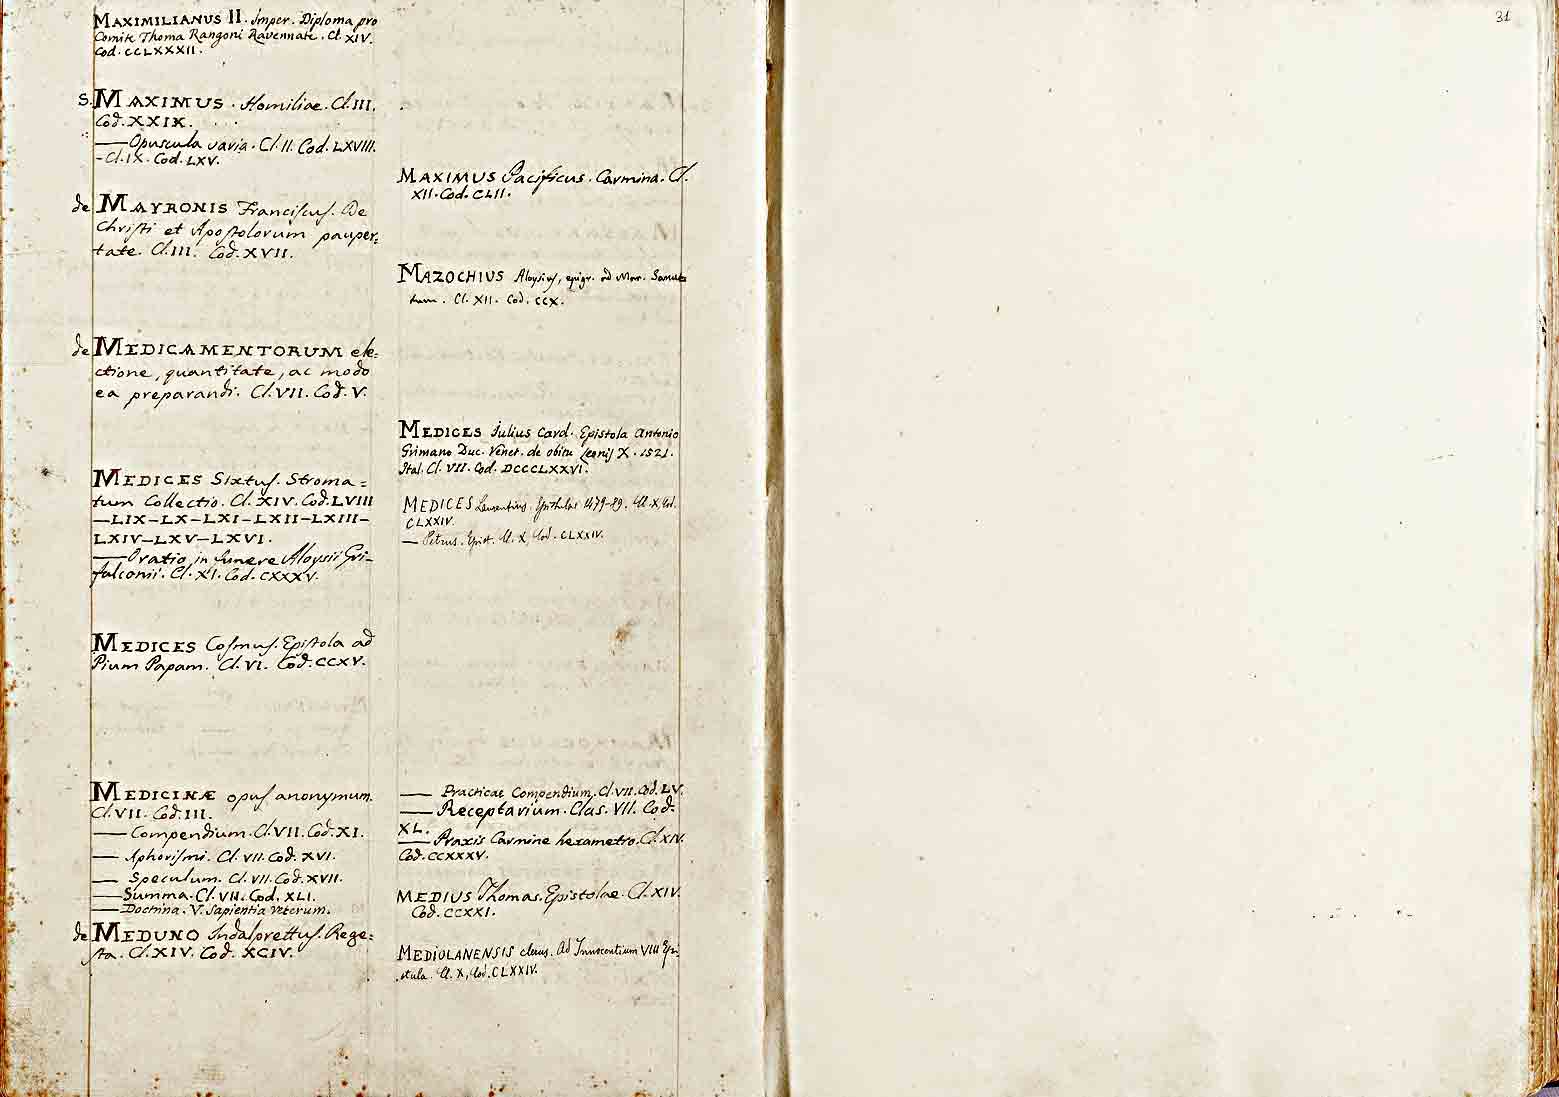 MAXIMILIANUS II. Imper. Diploma pro
Comite Thoma Rangoni Ravennate. Cl. XIV.
Cod. CCLXXXII.
S. MAXIMUS. Homiliae. Cl. III.
Cod. XXIX.
— Opuscula varia. Cl. II. Cod. LXVIII.
- Cl. IX. Cod. LXV.
de MAYRONIS Franciſcuſ. De
Chriſti et Apoſtolorum pauper=
tate. Cl. III. Cod. XVII.
de MEDICAMENTORUM ele=
ctione, quantitate, ac modo
ea preparandi. Cl. VII. Cod. V.
MEDICES Sixtuſ. Stroma=
tum Collectio. Cl. XIV. Cod. LVIII
—LIX—LX—LXI—LXII—LXIII—
LXIV—LXV—LXVI.
— Oratio in funere Aloysii Gri-
falconii. Cl. XI. Cod. CXXXV.
MEDICES Coſmuſ. Epiſtola ad
Pium Papam. Cl. VI. Cod. CCXV.
MEDICINÆ opuſ anonymum.
Cl. VII. Cod. III.
— Compendium. Cl. VII. Cod. XI.
— Aphoriſmi. Cl. VII. Cod. XVI.
— Speculum. Cl. VII. Cod. XVII.
— Summa. Cl. VII. Cod. XLI.
— Doctrina. V. Sapientia veterum.
de MEDUNO Indalprettuſ. Rege=
ſta. Cl. XIV. Cod. XCIV.
MAXIMUS Pacificus. Carmina. Cl.
XII. Cod. CLII.
MAZOCHIUS Aloysius, epigr. ad Mar. Sanu
tum. Cl. XII. Cod. CCX.
MEDICES Julius Card. Epistola Antonio
Grimano Duc. Venet. de obitu Leonis X. 1521.
Ital. Cl. VII. Cod. DCCCLXXVI.
MEDICES Laurentius. Epistulae 1479-89. Cl. X, Cod.
CLXXIV.
— Petrus. Epist. Cl. X, Cod. CLXXIV.
— Practicae Compendium. Cl. VII. Cod. LV.
— Receptarium. Clas. VII. Cod.
XL.
— Praxis Carmine hexametro. Cl. XIV.
Cod. CCXXXV.
MEDIUS Thomas. Epistolae. Cl. XIV.
Cod. CCXXI.
MEDIOLANENSIS clerus. Ad Innocentium VIII Epi-
stula. Cl. X, Cod. CLXXIV.
31